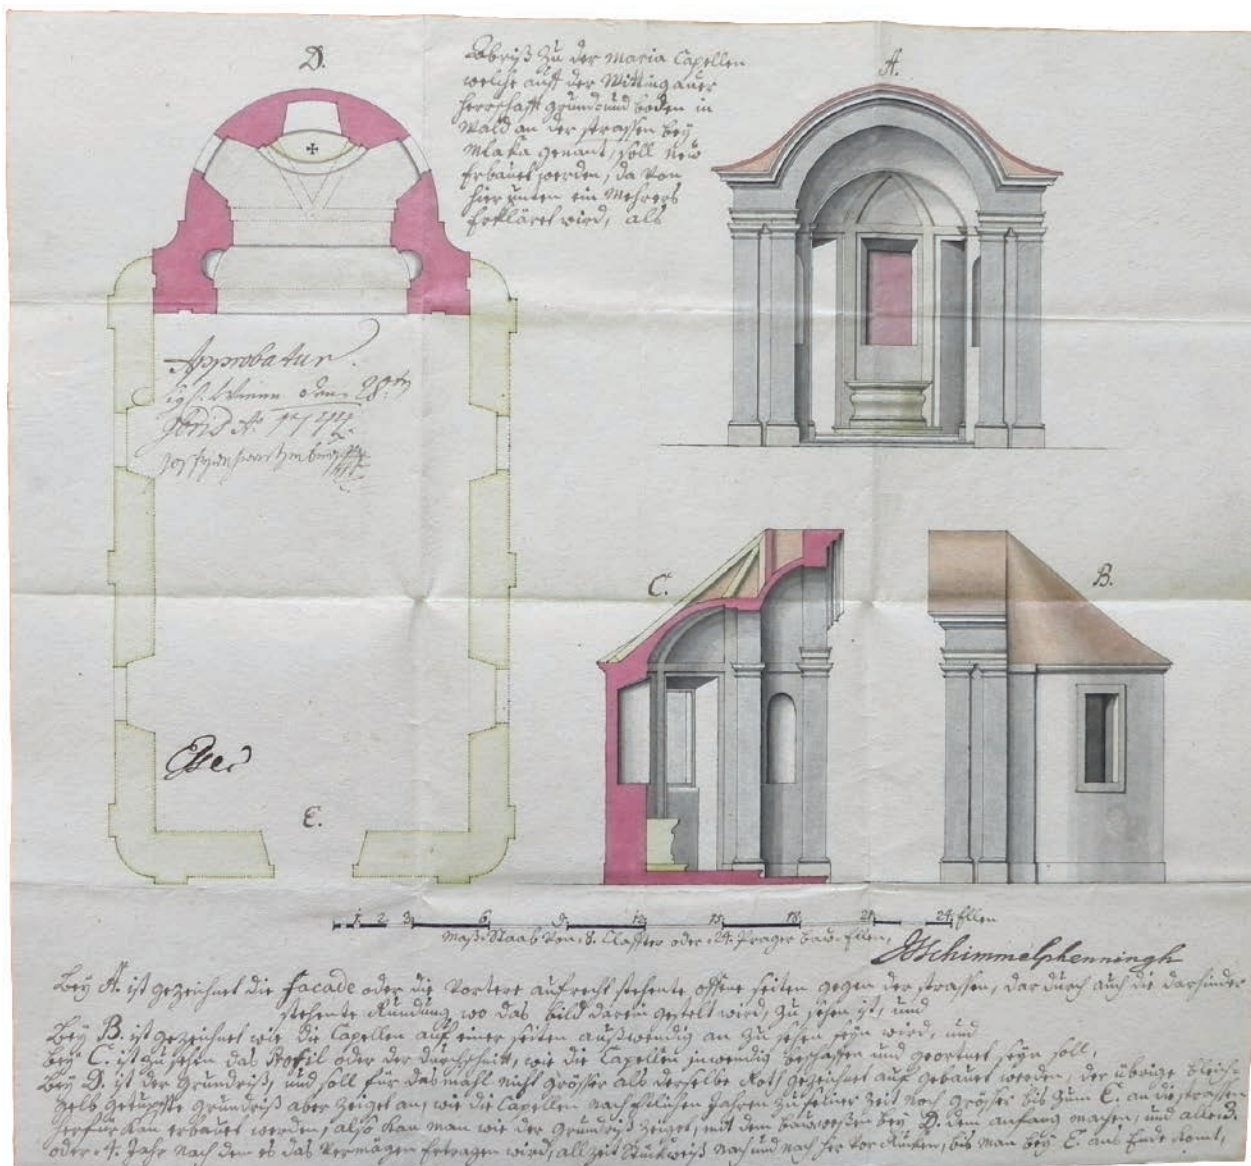 D.
Abriß Zu der Maria Capellen
welche auff der Wittingauer
Herrschafft grund und boden in
Wald an der strassen bey
Mlaka genant, soll neu
Erbauet werden, da von
hier unten ein Mehrers
Erkläret wird, als
A.
Approbatur.
Wienn den 28
A°
C.
B.
E.
1. 2. 3. 6. 9. 12. 15. 18. 21. 24. Ellen
Maß-Staab von 8. Claffter oder 24. Prager bau-Ellen,
Schimmelphenningh
Bey A. ist gezeichnet die facade oder die Vortere auffrecht stehente offene seiten gegen der strassen, dar durch auch die darhinder
stehente Rundung, wo das bild darein gestelt wird, zu sehen ist, und
Bey B. ist gezeichnet wie die Capellen auf einer seiten außwendig an zu sehen seyn wird, und
Bey C. ist zu sehen das Profil oder der durchschnitt, wie die Capellen inwendig beschaffen und geordnet seyn soll,
Bey D. ist der Grundriß, und soll für das mahl nicht grösser als derselbe Roth gezeichnet auf gebauet werden, der übrige bleich-
gelb getupffte grundriß aber zeiget an, wie die Capellen nach etlichen Jahren zu seiner Zeit noch grösser bis zum E. an die strassen
herfür kan erbauet werden, also kan man wie der Grundriß zeiget, mit dem bauweßen bey D. dem anfang machen, und
oder 4. Jahr nach dem es das Vermägen Ertragen wird, all zeit Stückweiß nach und nach her vor Rucken, bis man bey E. ans Ende komt,